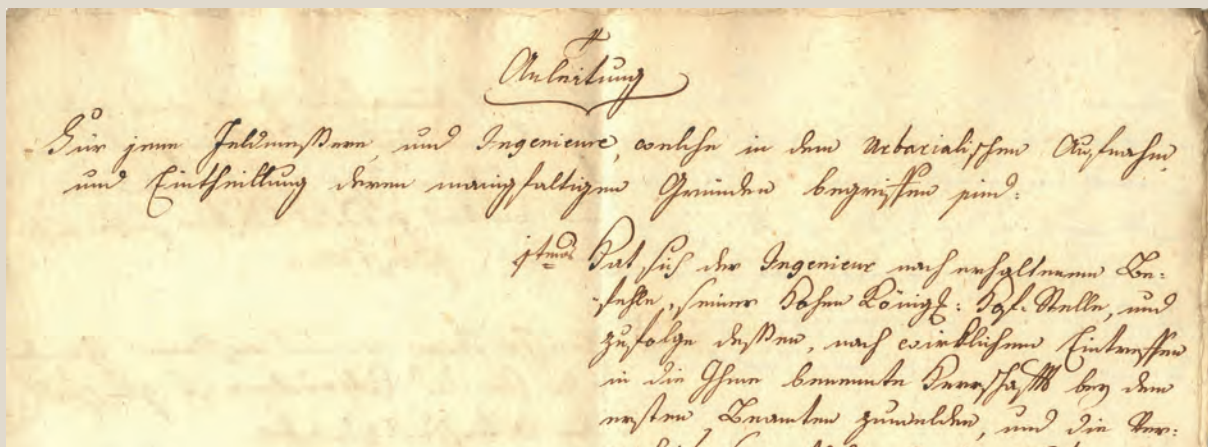 Anleitung
Für jene Feldmeßern, und Ingenieure, welche in dem Urbarialischen Aufnahm,
und Eintheillung deren manigfaltigen Gründen begriffen sind:
1mo Hat sich der Ingenieur nach erhaltenem Be-
fehle, seiner Hohen Königl: Stelle, und
zufolge deßen, nach wirklichem Eintreffen
in die Ihme benennte Herrschafft bey dem
ersten Beamten zumelden, und die Ver-